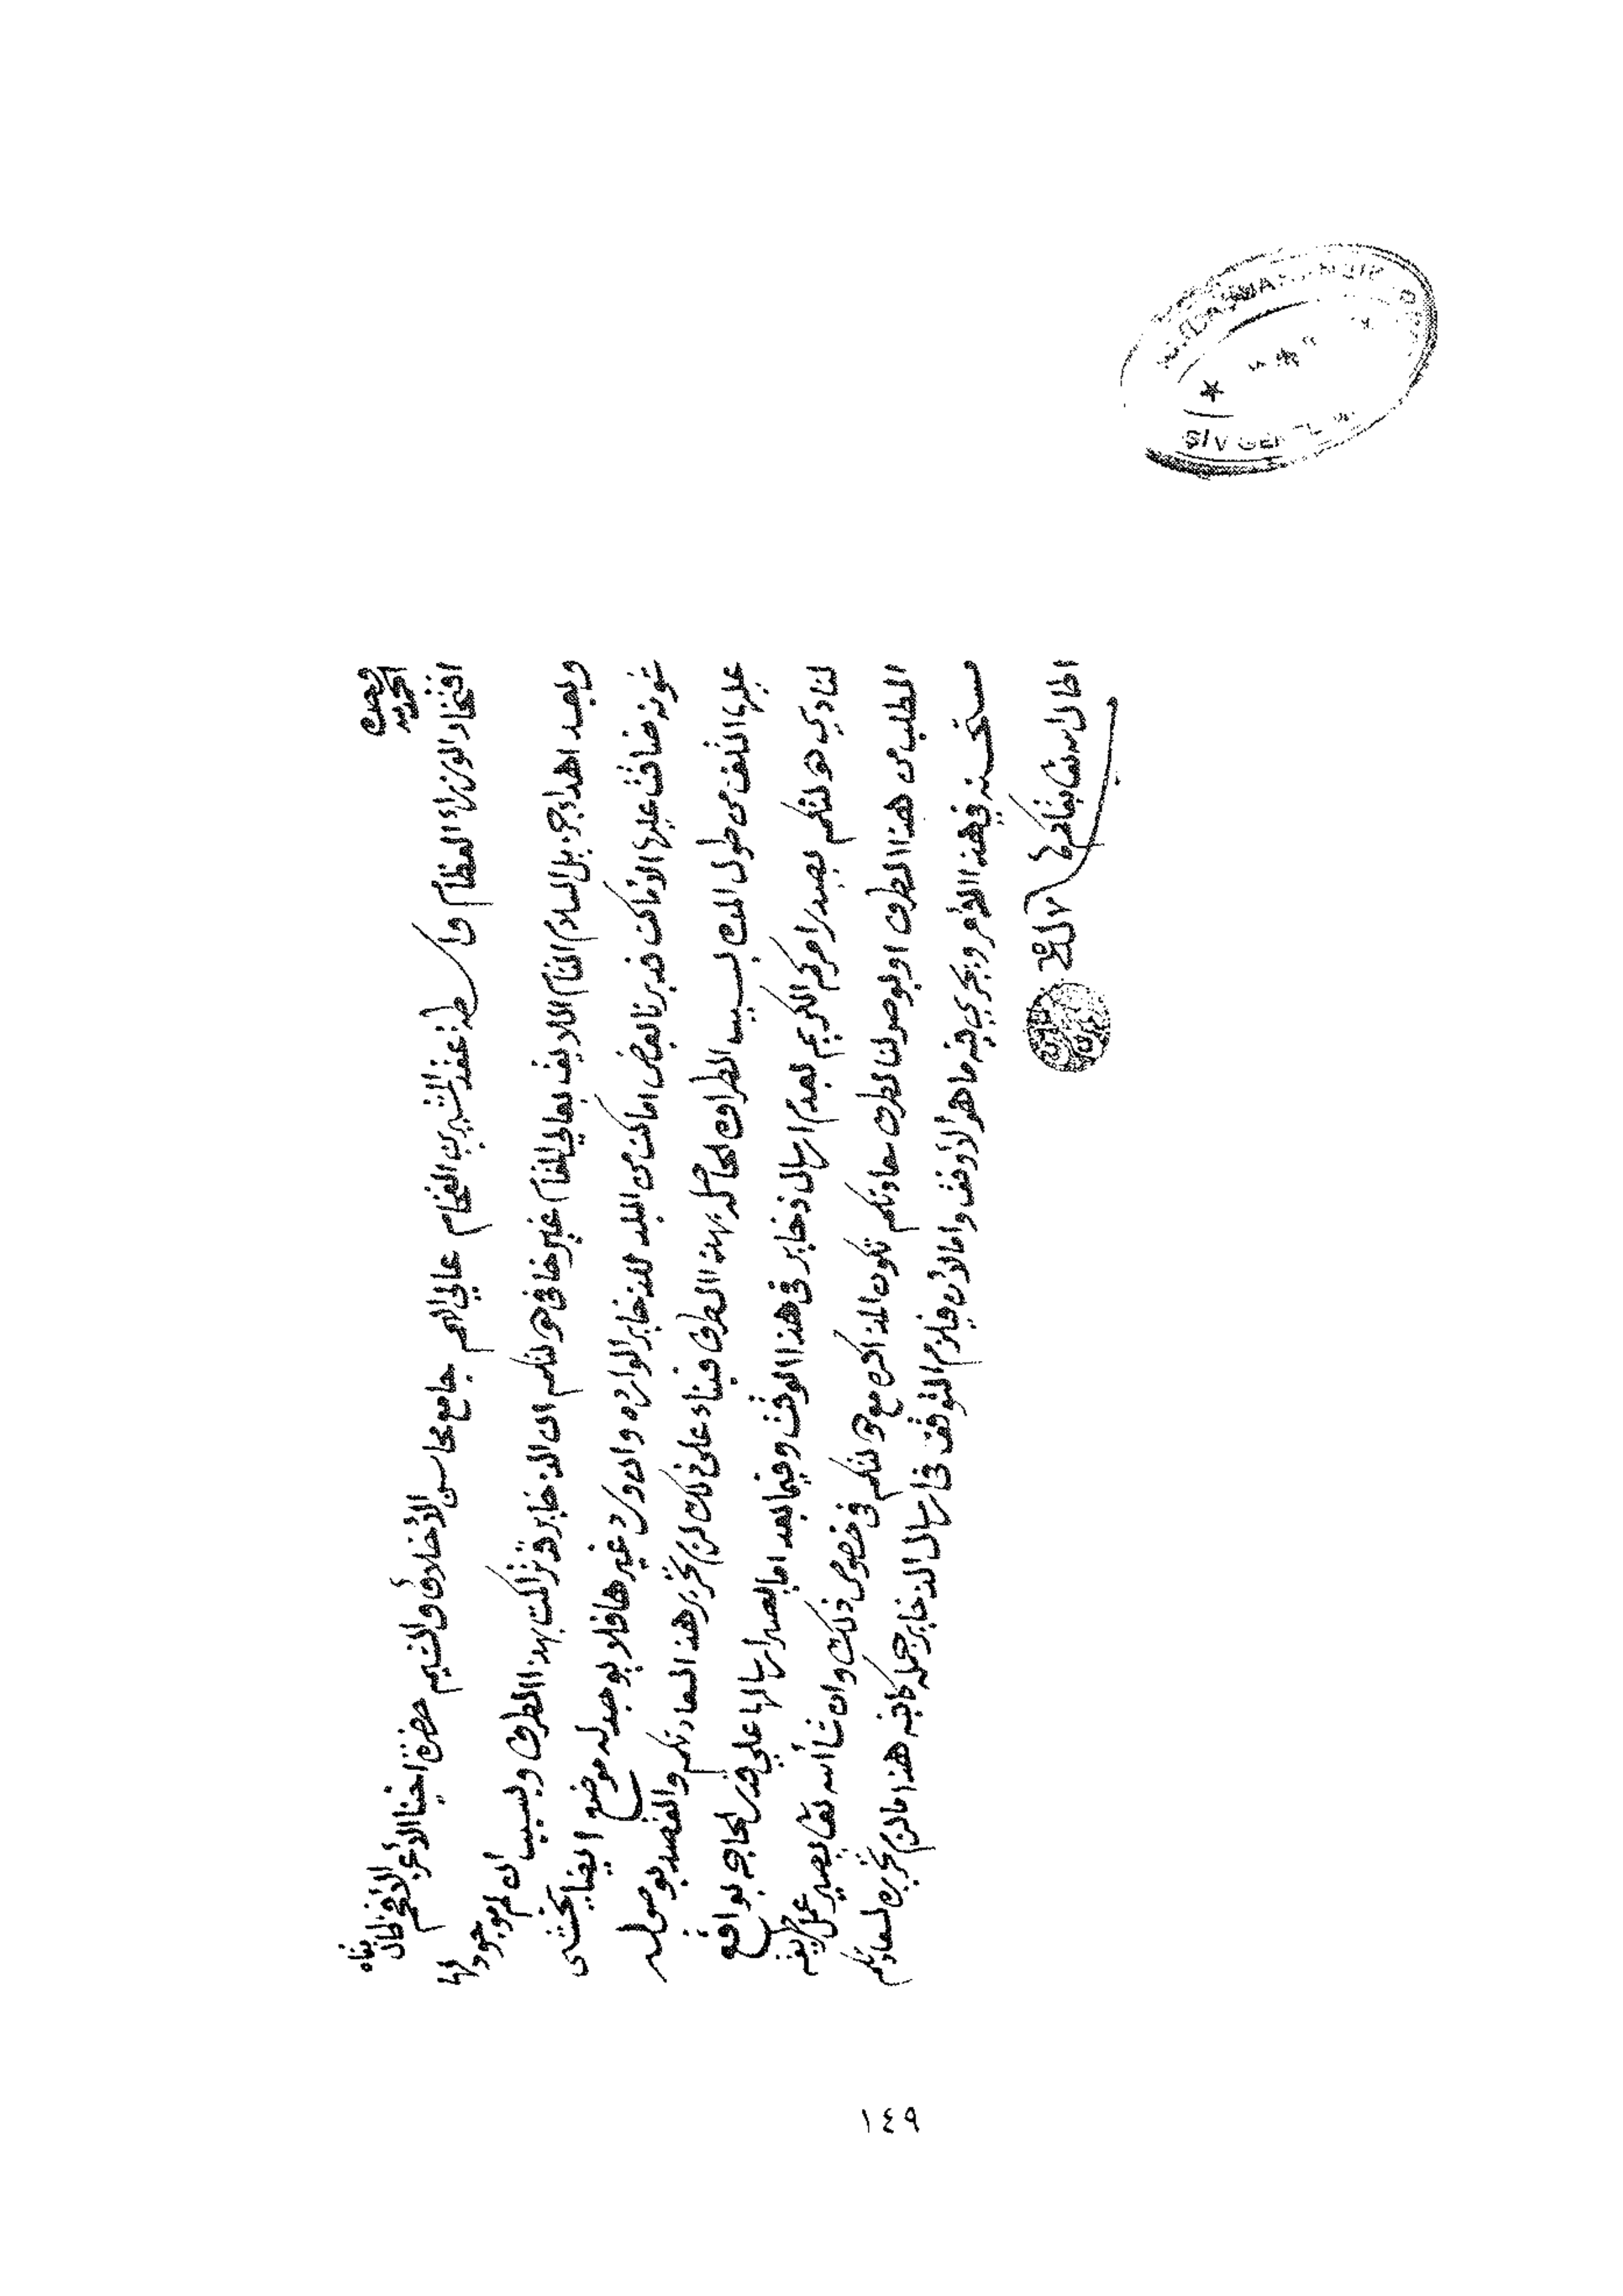 الحمد لله وحده
افتخار الوزراء العظام واسطة عقد المشيرين الفخام عالي الهمم جامع محاسن الاخلاق والشيم حضرة اخينا الأعز الأفخم اطال بقاه
وبعد اهداء جزيل السلام التام اللايق بعالي المقام غير خافي دولتكم ان الذخاير قد تراكمت بهذا الطرف وبسبب ان لم موجود لها
شونه ضاقت عليها الاماكن قد برنا بعض اماكن من البلد للذخاير الوارده وان ورد غيرها فلا يوجد له موضع ايضا يخشى
عليها التلف من طول المده بسبب الطراوه الحاصله بهذا الطرف فبناء على ذلك لزم تحرير هذا لسعادتكم والقصد بوصوله
لنادي دولتكم يصدر امركم الكريم بعدم ارسال ذخاير في هذا الوقت وفيما بعد اما يصير ارسالها على قدر الحاجه بواقع
الطلب من هذا الطرف او بوصولنا لطرف سعادتكم تكون المذاكره مع دولتكم في خصوص ذلك وان شا الله تعا يصير عمل طريقه
مستحسنه في هذا الامر ويجري فيه ما هو الأوفق واما الأن فيلزم التوقف في ارسال الذخاير جمله كافيه هذا ما لزم تحريره لسعادتكم
اطال الله تعا بقاكم
١٤٩